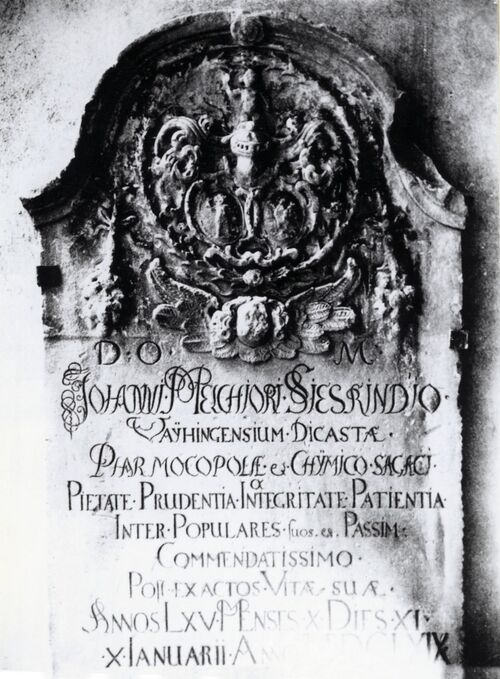 D · O · M
JOHANNI · MELCHIORI · SIESKINDIO ·
VAŸHINGENSIUM · DICASTÆ ·
PHARMOCOPOLÆ et CHŸMICO · SAGACI ·
PIETATE · PRUDENTIA · INTEGRITATE · PATIENTIA
INTER · POPULARES · suos · et · PASSIM ·
COMMENDATISSIMO ·
POST · EXACTOS · VITÆ · SUÆ ·
ANNOS · LXV · MENSES · X · DIES · XI ·
· X · IANUARII ·